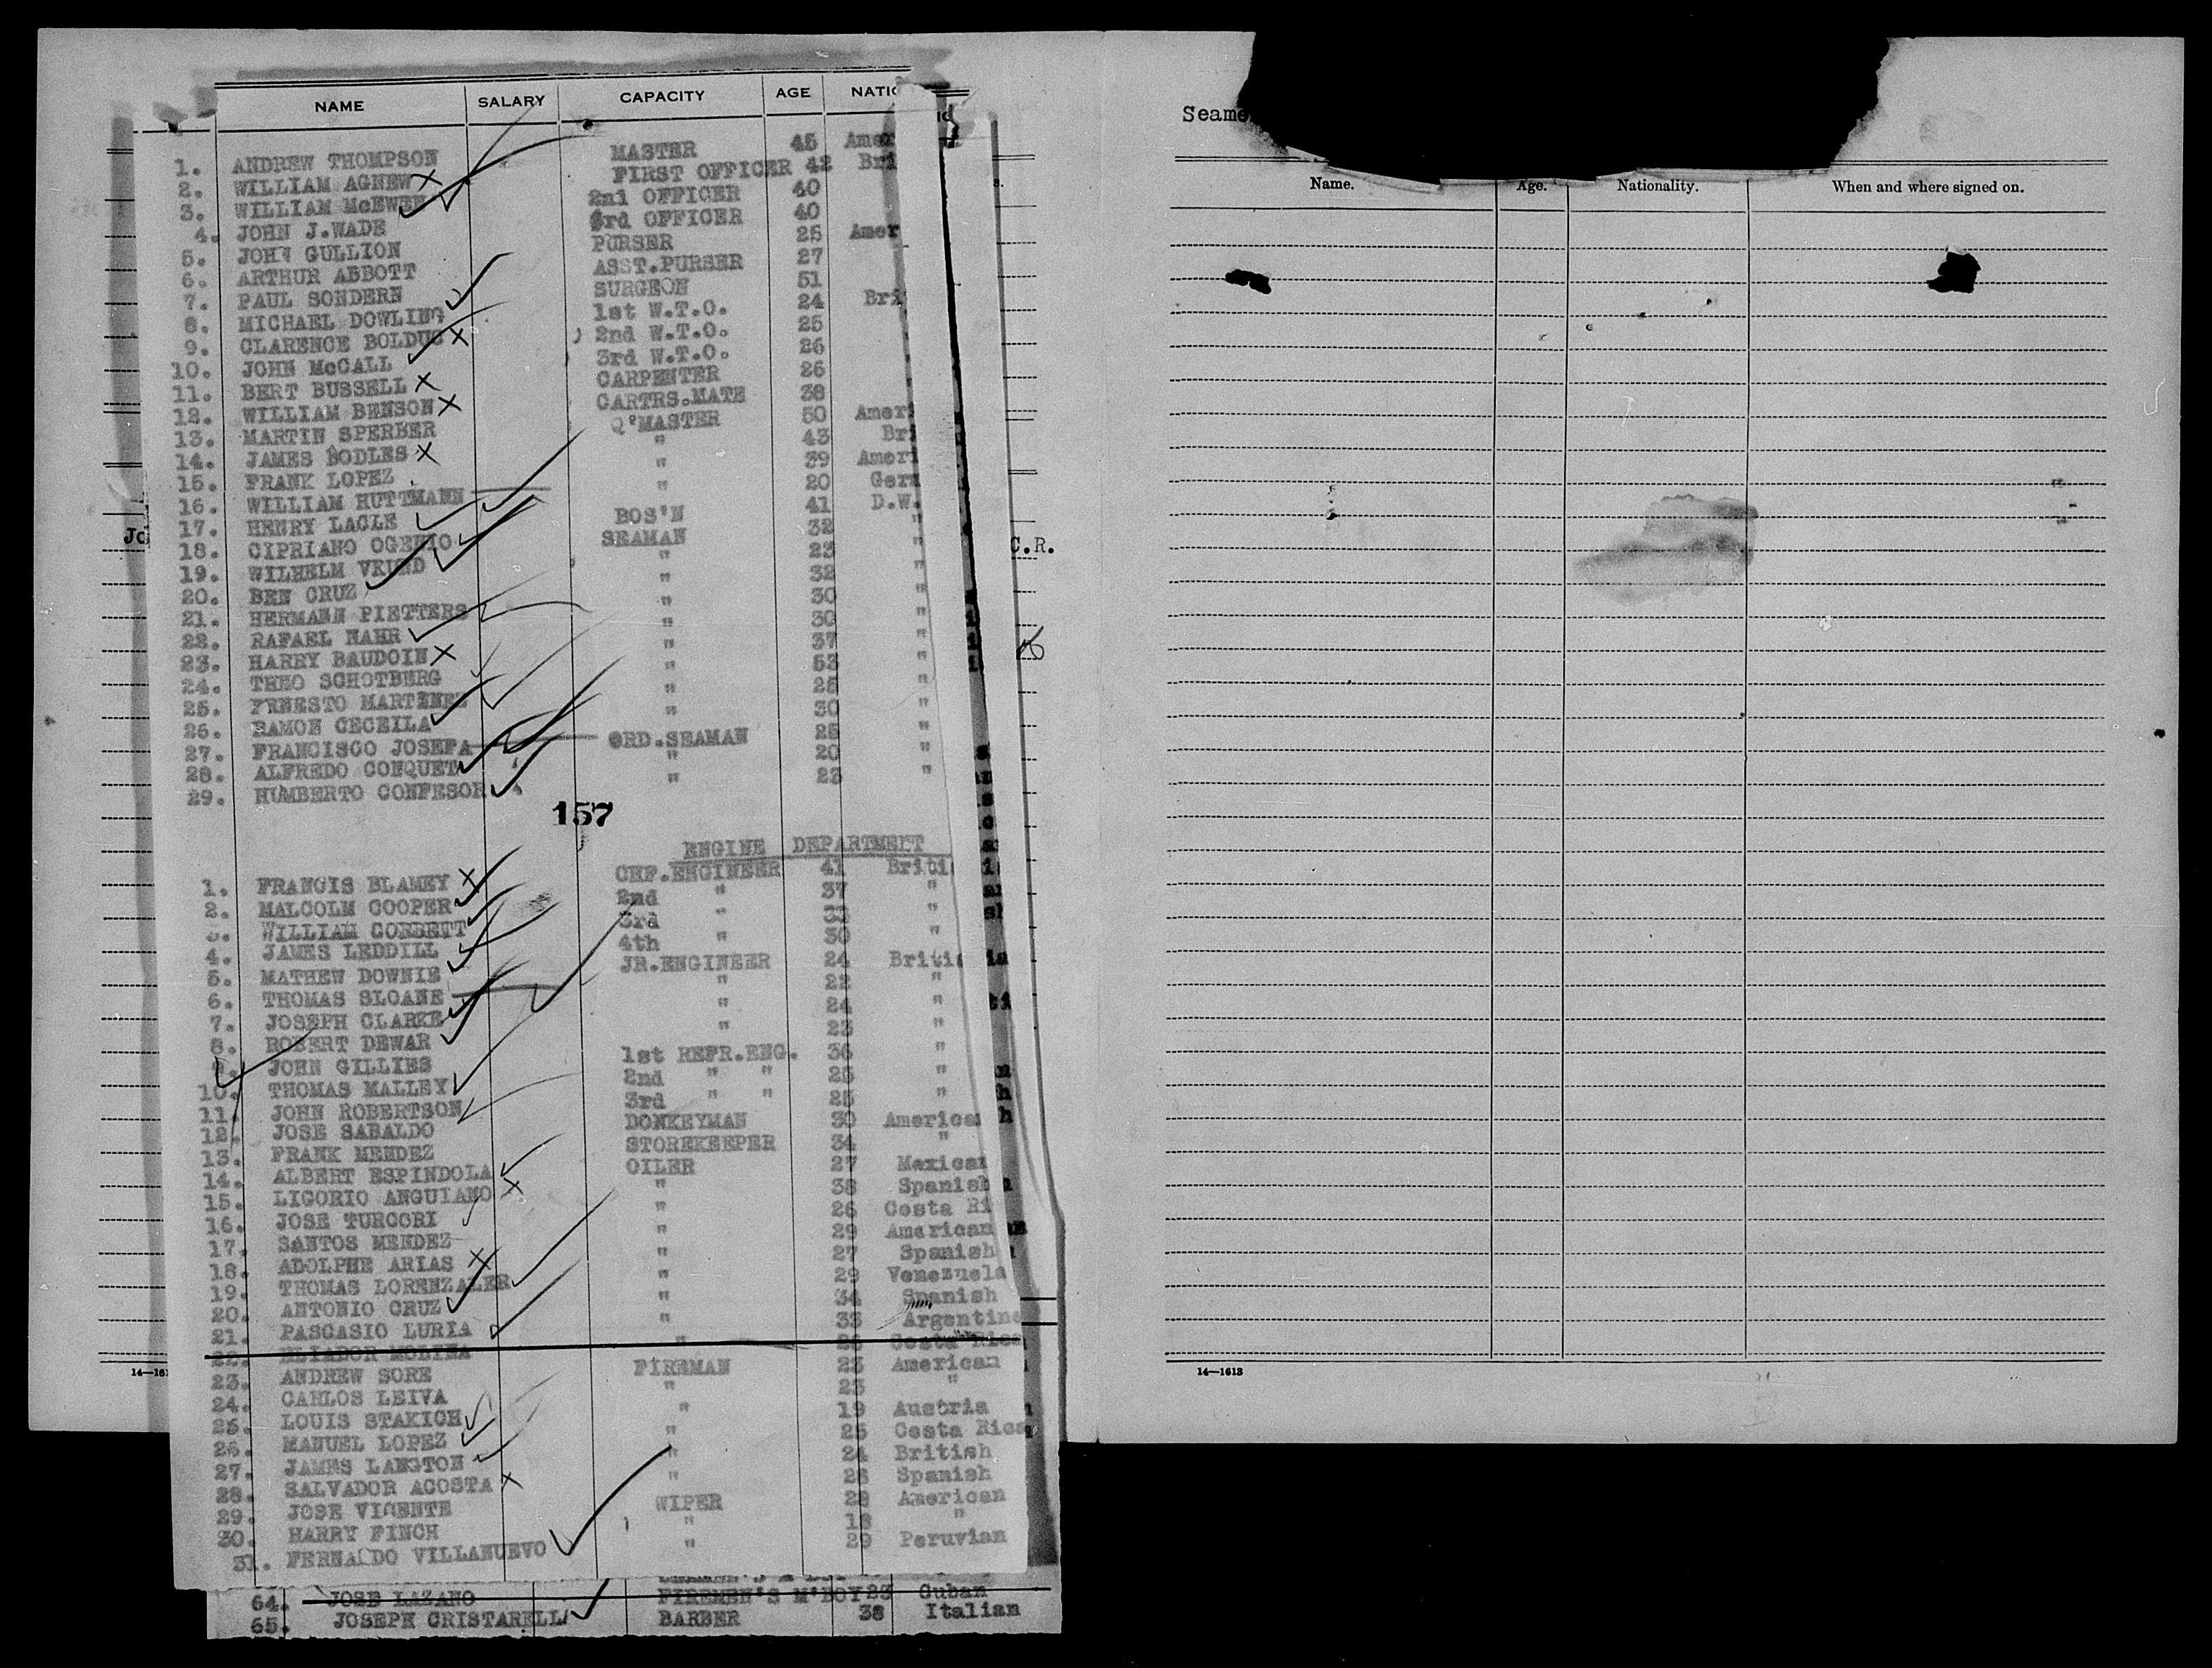 NAME SALARY CAPACITY AGE NATIO
1. ANDREW THOMPSON MASTER 45 Amer
2. WILLIAM AGNEW FIRST OFFICER 42 Bri
3. WILLIAM McEWEN 2nd OFFICER 40
4. JOHN J.WADE 3rd OFFICER 40
5. JOHN GULLION PURSER 25 Amer
6. ARTHUR ABBOTT ASST.PURSER 27
7. PAUL SONDERN SURGEON 51
8. MICHAEL DOWLING 1st W.T.O. 24 Bri
9. CLARENCE BOLDUC 2nd W.T.O. 25
10. JOHN McCALL 3rd W.T.O. 26
11. BERT BUSSELL CARPENTER 26
12. WILLIAM BENSON CARTRS.MATE 38
13. MARTIN SPERBER Q'MASTER 50 Ameri
14. JAMES BODLES " 43 Bri
15. FRANK LOPEZ " 39 Ameri
16. WILLIAM HUTTMANN " 20 Germ
17. HENRY LACLE BOS'N 41 D.W.
18. CIPRIANO OGENIO SEAMAN 32 "
19. WILHELM VRIND " 23 "
20. BEN CRUZ " 32 "
21. HERMANN PIETTERS " 30 "
22. RAFAEL NAHR " 30 "
23. HARRY BAUDOIN " 37 "
24. THEO SCHOTBERG " 53 "
25. ERNESTO MARTINEZ " 25 "
26. RAMON CECEILA " 30 "
27. FRANCISCO JOSEFA ORD.SEAMAN 25 "
28. ALFREDO CONQUET " 20 "
29. HUMBERTO CONFESOR " 23 "
157
ENGINE DEPARTMENT
1. FRANCIS BLAMEY CHF.ENGINEER 41 Briti
2. MALCOLM COOPER 2nd " 37 "
3. WILLIAM CORBETT 3rd " 33 "
4. JAMES LEDDILL 4th " 30 "
5. MATHEW DOWNIE JR.ENGINEER 24 Britis
6. THOMAS SLOANE " 22 "
7. JOSEPH CLARKE " 24 "
8. ROBERT DEWAR " 23 "
9. JOHN GILLIES 1st REFR.ENG. 36 "
10. THOMAS MALLEY 2nd " " 25 "
11. JOHN ROBERTSON 3rd " " 25 "
12. JOSE SABALDO DONKEYMAN 30 American
13. FRANK MENDEZ STOREKEEPER 34 "
14. ALBERT ESPINDOLA OILER 27 Mexican
15. LIGORIO ANGUIANO " 38 Spanish
16. JOSE TURCORI " 26 Costa Ri
17. SANTOS MENDEZ " 29 American
18. ADOLPHE ARIAS " 27 Spanish
19. THOMAS LORENZALER " 29 Venezuela
20. ANTONIO CRUZ " 34 Spanish
21. PASCASIO LURIA " 33 Argentine
22. ELIADOR MOLINA " 26 Costa Rica
23. ANDREW SORE FIREMAN 23 American
24. CARLOS LEIVA " 23 "
25. LOUIS STAKICH " 19 Austria
26. MANUEL LOPEZ " 25 Costa Rica
27. JAMES LANGTON " 24 British
28. SALVADOR ACOSTA " 28 Spanish
29. JOSE VICENTE WIPER 28 American
30. HARRY FINCH " 18 "
31. FERNALDO VILLANUEVO " 29 Peruvian
64. JOSE LAZANO FIREMEN'S M'BOY 23 Cuban
65. JOSEPH CRISTARELLA BARBER 38 Italian
Jo
C.R.
14—161
Seame
Name. Age. Nationality. When and where signed on.
14—1613